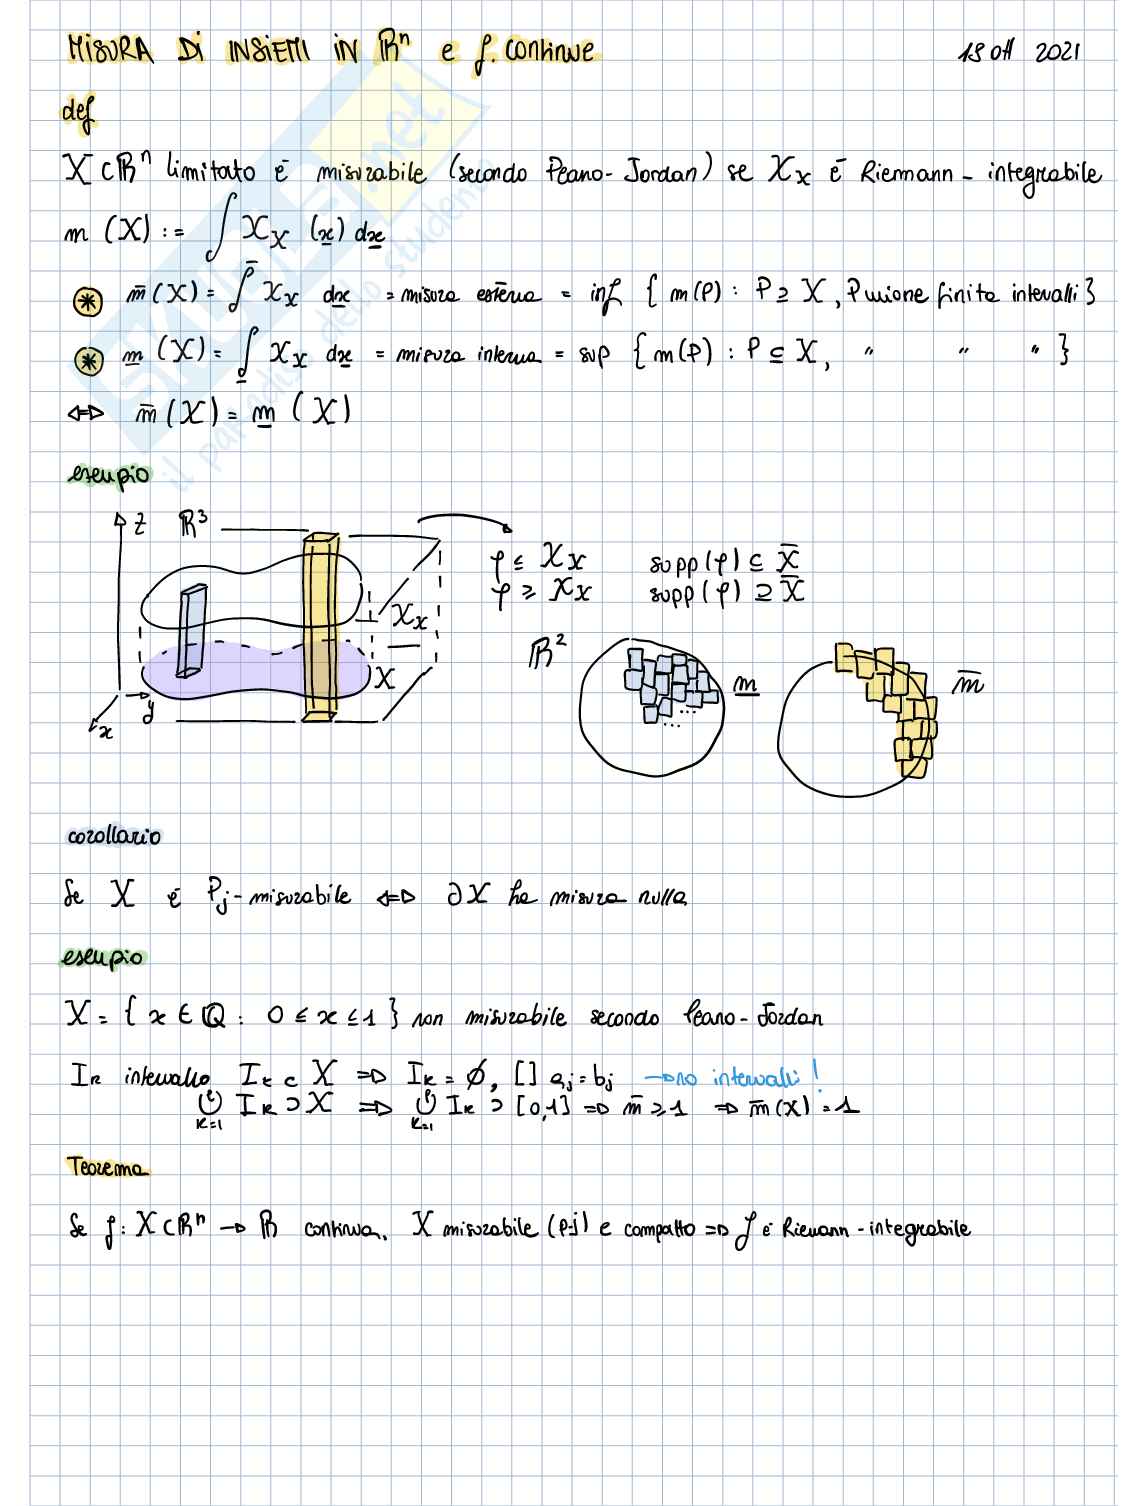 MISURA DI INSIEMI IN ℝⁿ e f. continue 18 ott 2021
def
X ⊂ ℝⁿ limitato è misurabile (secondo Peano-Jordan) se χ_X è Riemann-integrabile
m (X) := ∫ χ_X (x) dx
⊛ m̅ (X) = ∫̅ χ_X dx = misura esterna = inf { m(P) : P ⊇ X, P unione finita intervalli }
⊛ m̲ (X) = ∫̲ χ_X dx = misura interna = sup { m(P) : P ⊆ X, " " " }
⇔ m̅ (X) = m̲ (X)
esempio
z ℝ³
φ ≤ χ_X supp(φ) ⊆ X̅
φ ≥ χ_X supp(φ) ⊇ X̅
χ_X
ℝ² m̲ m̅
X
y
x
corollario
Se X è Pj-misurabile ⇔ ∂X ha misura nulla
esempio
X = { x ∈ ℚ : 0 ≤ x ≤ 1 } non misurabile secondo Peano-Jordan
I_k intervallo I_k ⊂ X ⇒ I_k = ∅, [] a_j = b_j → no intervalli!
⋃_{k=1} I_k ⊃ X ⇒ ⋃_{k=1} I_k ⊃ [0,1] ⇒ m̅ ≥ 1 ⇒ m̅ (X) = 1
Teorema
Se f: X ⊂ ℝⁿ → ℝ continua, X misurabile (p-j) e compatto ⇒ f è Riemann-integrabile
SKUOLA.net
il paradiso dello studente